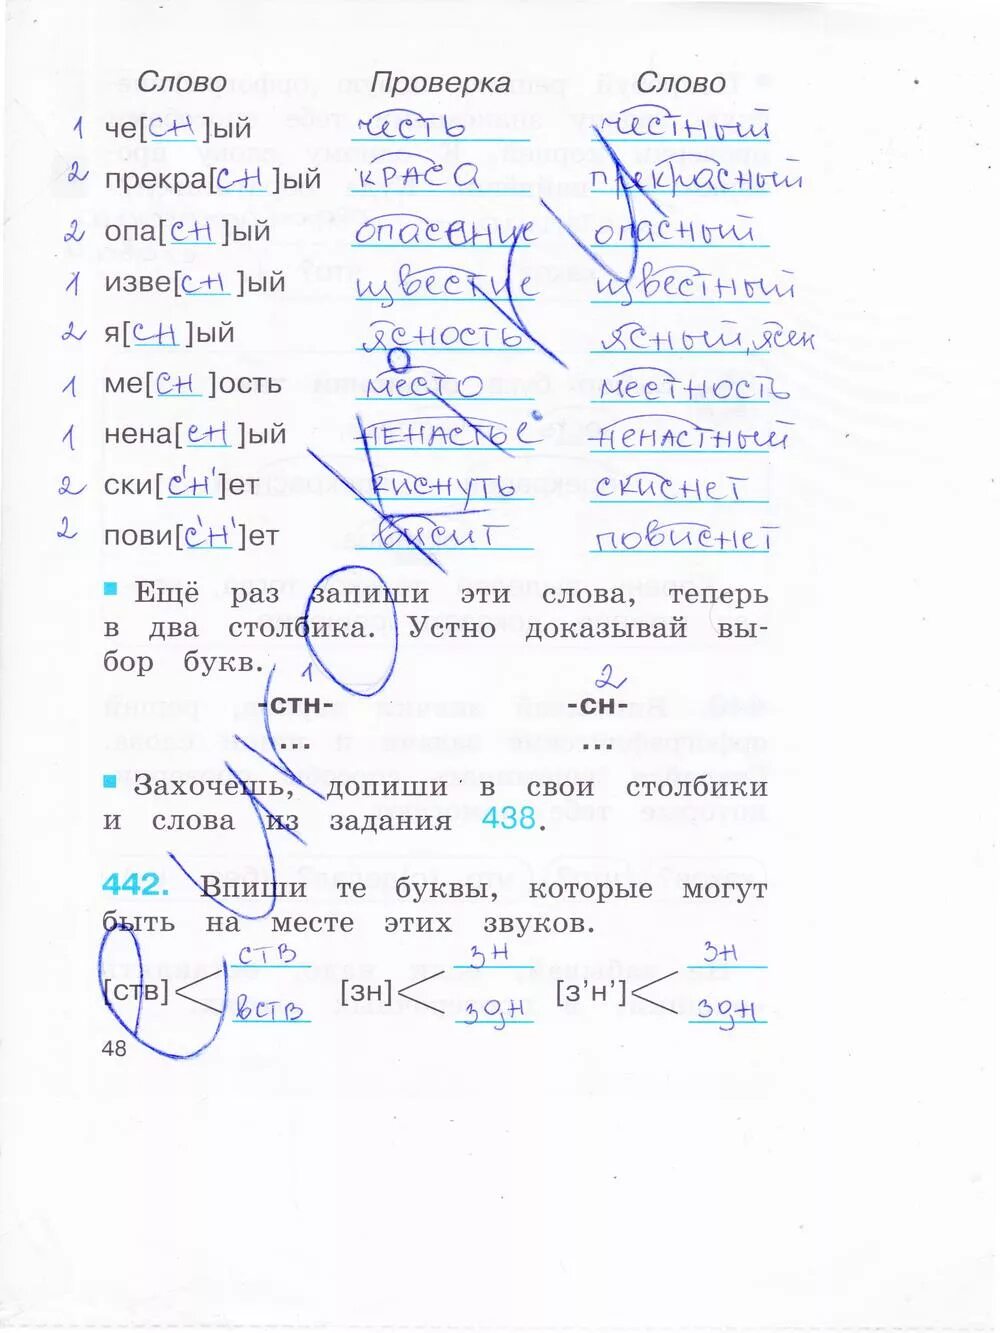 Слово Проверка Слово
1 че[сн]ый честь честный
2 прекра[сн]ый краса прекрасный
2 опа[сн]ый опасение опасный
1 изве[сн]ый известие известный
2 я[сн]ый ясность ясный, ясен
1 ме[сн]ость место местность
1 нена[сн]ый ненастье ненастный
2 ски[с'н']ет киснуть скиснет
2 пови[с'н']ет висит повиснет
Ещё раз запиши эти слова, теперь
в два столбика. Устно доказывай вы-
бор букв.
1 2
-стн- -сн-
... ...
Захочешь, допиши в свои столбики
и слова из задания 438.
442. Впиши те буквы, которые могут
быть на месте этих звуков.
ств зн зн
[ств] [зн] [з'н']
вств здн здн
48